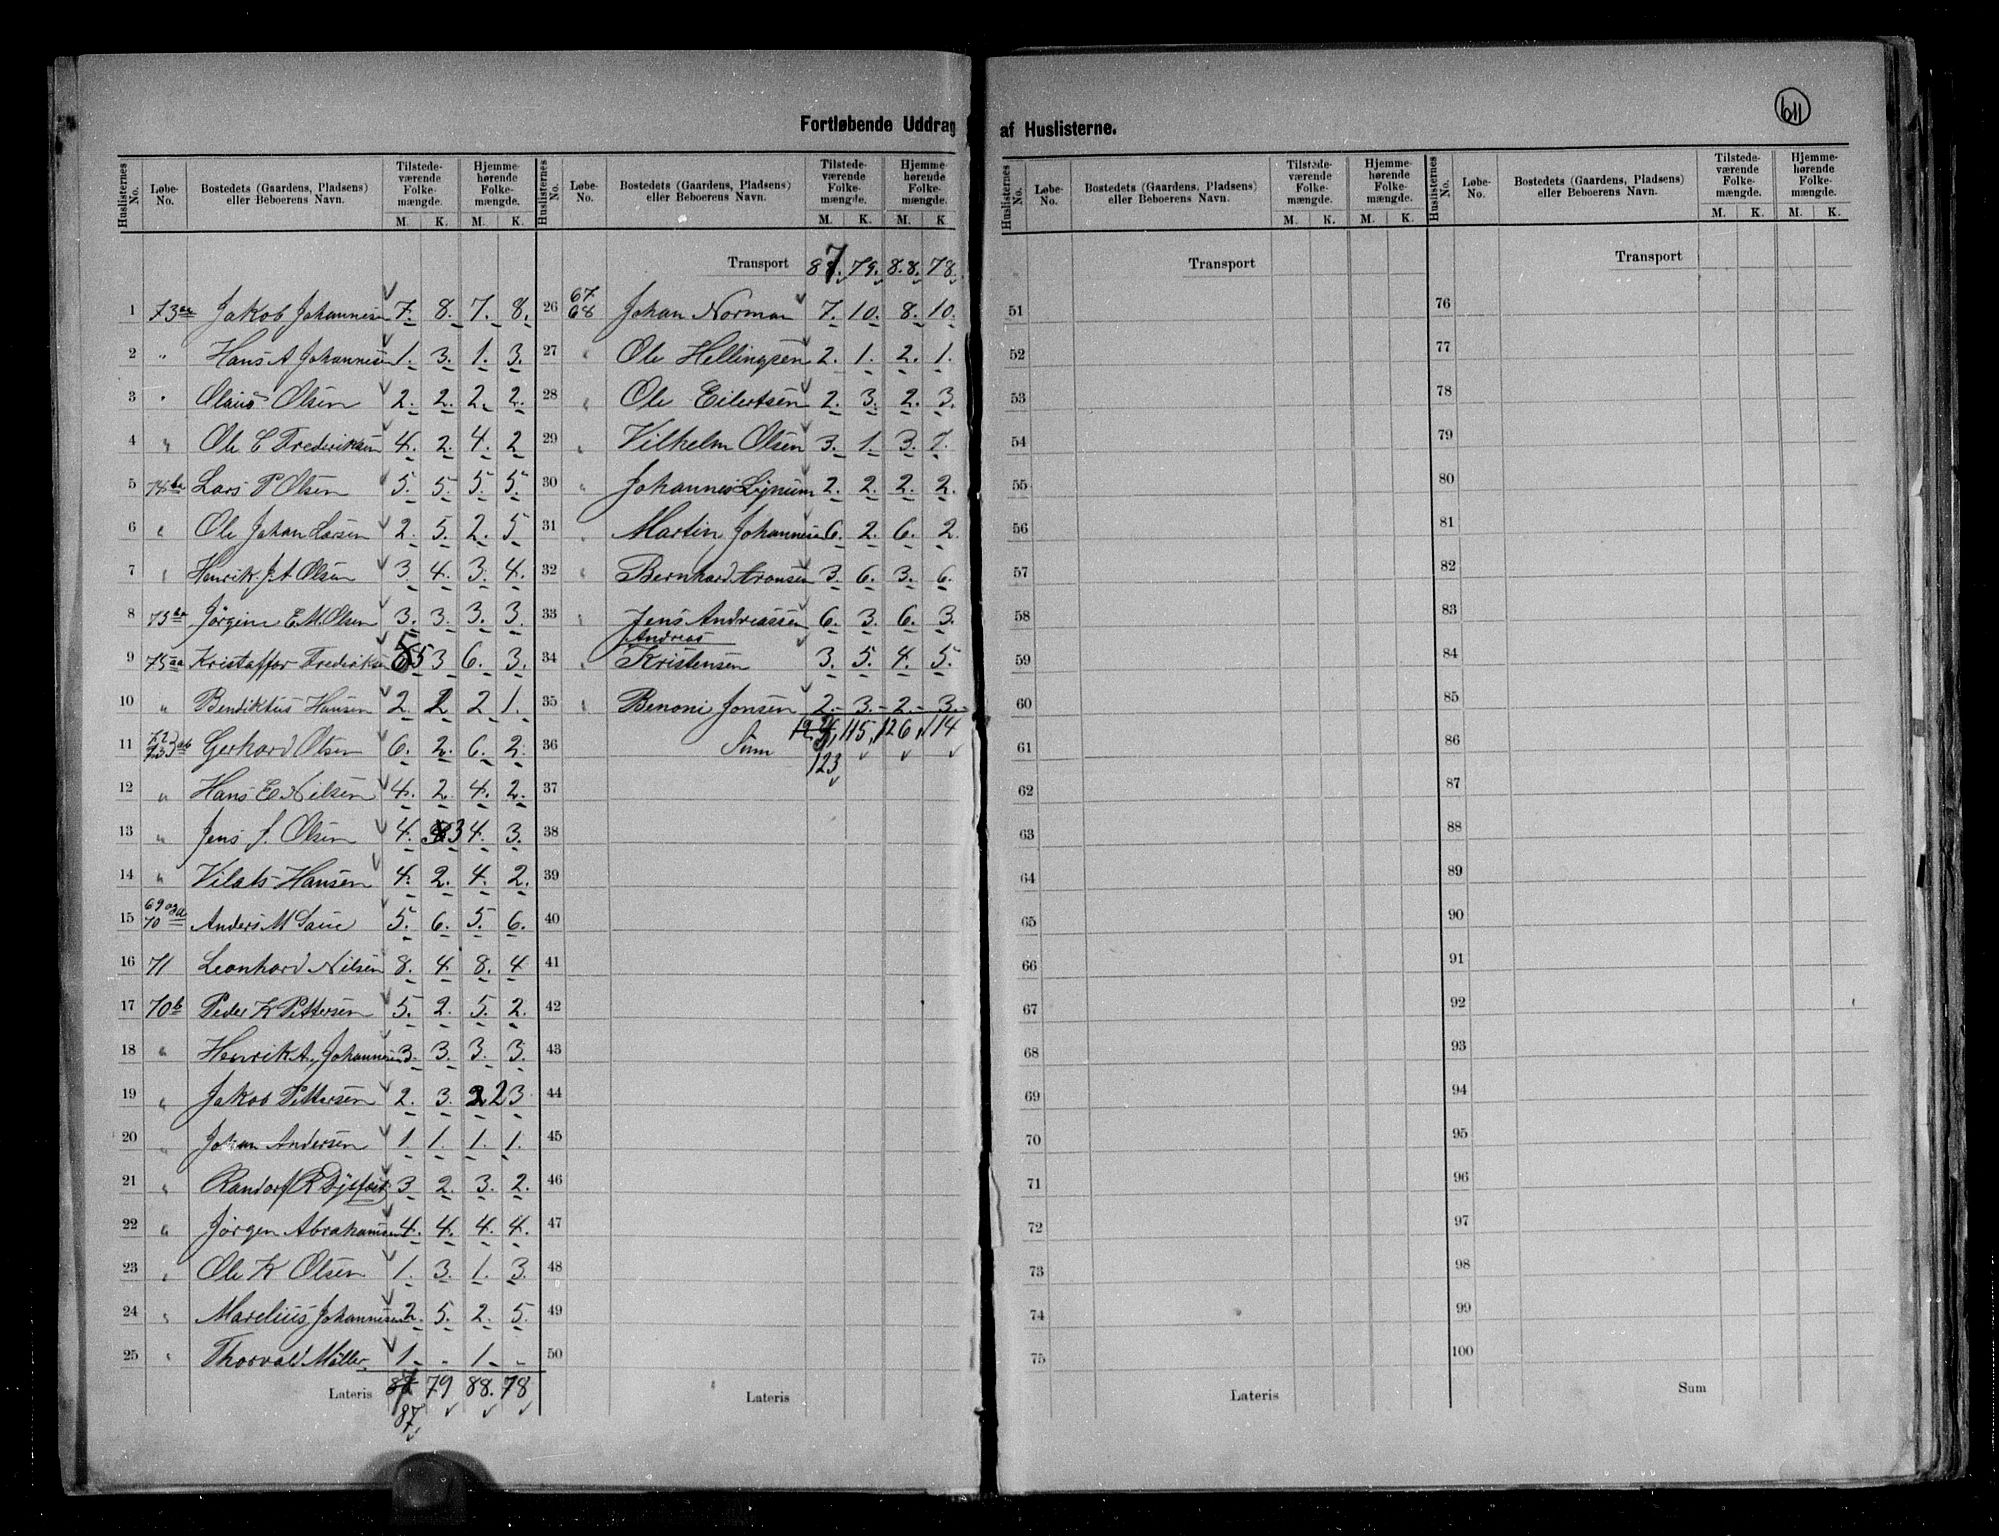 611
Fortløbende Uddrag af Huslisterne.
Huslisternes No. Løbe-No. Bostedets (Gaardens, Pladsens) eller Beboerens Navn. Tilstedeværende Folkemængde. M. K. Hjemmehørende Folkemængde. M. K.
1 73 Jakob Johannesen 7. 8. 7. 8.
2 " Hans A Johannesen 1. 3. 1. 3.
3 " Olaus Olsen 2. 2. 2. 2.
4 " Ole C Frederiksen 4. 2. 4. 2
5 74 Lars P Olsen 5. 5. 5. 5.
6 " Ole Johan Larsen 2. 5. 2. 5
7 " Henrik J. A Olsen 3. 4. 3. 4.
8 75 Jørgine E. M. Olsen 3. 3. 3. 3.
9 75aa Kristaffor Frederiksen 5 3 6. 3.
10 " Bendiktus Hansen 2. 2 2 1.
11 Gerhard Olsen 6. 2. 6. 2.
12 " Hans E Nilsen 4. 2. 4. 2.
13 " Jens J. Olsen 4. 3 4. 3.
14 " Vilats Hansen 4. 2. 4. 2.
15 69 og 70 Anders M 5. 6. 5. 6.
16 71 Leonhard Nilsen 8. 4. 8. 4
17 70b Peder K Pettersen 5. 2. 5. 2.
18 " Henrik A. Johannesen 3. 3. 3. 3.
19 " Jakob Pettersen 2. 3. 2 3.
20 " Johan Andersen 1. 1. 1. 1.
21 " Randorf R 3 2. 3. 2.
22 " Jørgen Abrahamsen 4. 4. 4. 4.
23 " Ole K Olsen 1. 3. 1. 3.
24 " Marelius Johannesen 2. 5. 2. 5.
25 " Thorvald Møller 1. - 1. -
Lateris 79 88. 78
87
Huslisternes No. Løbe-No. Bostedets (Gaardens, Pladsens) eller Beboerens Navn. Tilstedeværende Folkemængde. M. K. Hjemmehørende Folkemængde. M. K
Transport 87. 79. 88. 78.
26 67 68 Johan Norman 7. 10. 8. 10.
27 " Ole Hellingsen 2. 1. 2. 1.
28 " Ole Eilertsen 2. 3. 2. 3.
29 " Vilhelm Olsen 3. 1. 3. 1.
30 " Johannes 2. 2. 2. 2.
31 " Martin Johannesen 6. 2. 6. 2
32 " Bernhard 3. 6. 3. 6.
33 " Jens Andreassen 6. 3. 6. 3.
34 " Andreas Kristensen 3. 5. 4. 5.
35 " Benoni Jonsen 2. 3. 2. 3.
36 Sum 115, 126, 114
123
37
38
39
40
41
42
43
44
45
46
47
48
49
50
Lateris
Huslisternes No. Løbe-No. Bostedets (Gaardens, Pladsens) eller Beboerens Navn. Tilstedeværende Folkemængde. M. K. Hjemmehørende Folkemængde. M. K.
Transport
51
52
53
54
55
56
57
58
59
60
61
62
63
64
65
66
67
68
69
70
71
72
73
74
75
Lateris
Huslisternes No. Løbe-No. Bostedets (Gaardens, Pladsens) eller Beboerens Navn. Tilstedeværende Folkemængde. M. K. Hjemmehørende Folkemængde. M. K.
Transport
76
77
78
79
80
81
82
83
84
85
86
87
88
89
90
91
92
93
94
95
96
97
98
99
100
Sum